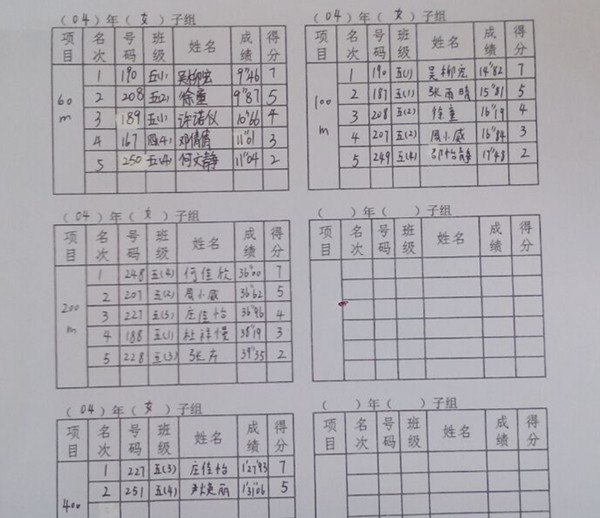 （04）年（女）子组
项目 名次 号码 班级 姓名 成绩 得分
60m
1 190 五(1) 吴柳宏 9"46 7
2 208 五(2) 徐童 9"87 5
3 189 五(1) 许诺仪 10"66 4
4 167 四(4) 邓倩倩 11"01 3
5 250 五(4) 何文静 11"04 2
（04）年（女）子组
项目 名次 号码 班级 姓名 成绩 得分
100m
1 190 五(1) 吴柳宏 14"82 7
2 187 五(1) 张雨晴 15"81 5
3 208 五(2) 徐童 16"19 4
4 207 五(2) 周小威 16"84 3
5 249 五(4) 邵怡静 17"48 2
（04）年（女）子组
项目 名次 号码 班级 姓名 成绩 得分
200m
1 248 五(4) 何佳欣 36"00 7
2 207 五(2) 周小威 36"62 5
3 227 五(3) 庄佳怡 36"96 4
4 188 五(1) 38"19 3
5 228 五(3) 39"35 2
（ ）年（ ）子组
项目 名次 号码 班级 姓名 成绩 得分
（04）年（女）子组
项目 名次 号码 班级 姓名 成绩 得分
400
1 227 五(3) 庄佳怡 1'27"93 7
2 251 五(4) 1'31"06 5
（ ）年（ ）子组
项目 名次 号码 班级 姓名 成绩 得分